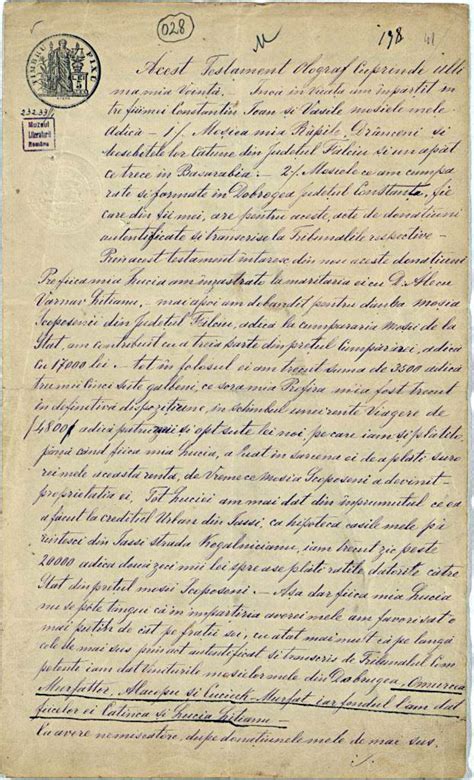 028
198
41
TIMBRU FIX
232.331
Muzeul
Literaturii
Române
Acest Testament Olograf Cuprinde ulti
ma mia Vointă. — Inca in Viata am impartit in
tre fii mei Constantin, Ioan si Vasile mosiele mele
Adică — 1/. Mosiea mia Răpile, Drănceni si
Catune din Judetul Falciu si un apiat
ce trece in Basarabia. — 2/. Mosiele ce am cumpa
rate si formate in Dobrogea Judetul Constanta, fie
care din fii mei, are pentru aceste, acte de donatiuni
autentificate si transcrise la Tribunalile respective —
Prin acest testament intaresc din nou aceste donatiuni
Pe fiica mia Lucia am inzestrato la maritaria ei cu D. Alecu
Varnav Liteanu, — mai apoi am dobandit pentru dansa mosia
Scoposenii din Judetul Falciu, adica la cumpararia mosii de la
Stat am contribuit cu a treia parte din pretul Cumpărărei, adica
cu 17000 lei. — tot in folosul ei am trecut suma de 3500 adică
trei mii Cinci sute galbeni, ce sora mia Profira mia fost trecut
in definitivă dispozitiune, in schimbul unei rente Viagere de
4800 adică patru mii si opt sute lei noi, pe care iam si platito,
pănă cănd fiica mia Lucia, a luat in sarcina ei de a plati suro
rei mele aceasta renta, de Vreme ce mosia Scoposeni a devinit
proprietatia ei, Tot Luciei am mai dat din inprumutul ce ea
a făcut la creditul Urban din Iassi, ca hipoteca casile mele
din Iassi strada Kogalniceanu, iam trecut zic peste
20000 adica douăzeci mii lei spre a se plati ratile datorite către
Stat din pretul mosei Scoposeni. — Asa dar fiica mia Lucia
nu se pote tingui că in impartiria averei mele am favorisat o
mai putin de cat pe fratii sei, cu atat mai mult că pe langă
cele de mai sus prin act autentificat si transcris de Tribunalul Com
petente iam dat Viniturile mosielor mele din Dobrogea, Omurcea
Murfatlar, Alacapu si Murfat iar fondul l'am dat
fiicelor ei Catinca si Lucia Liteanu —
Cu avere nemiscatore, dupe donatiunele mele de mai sus.